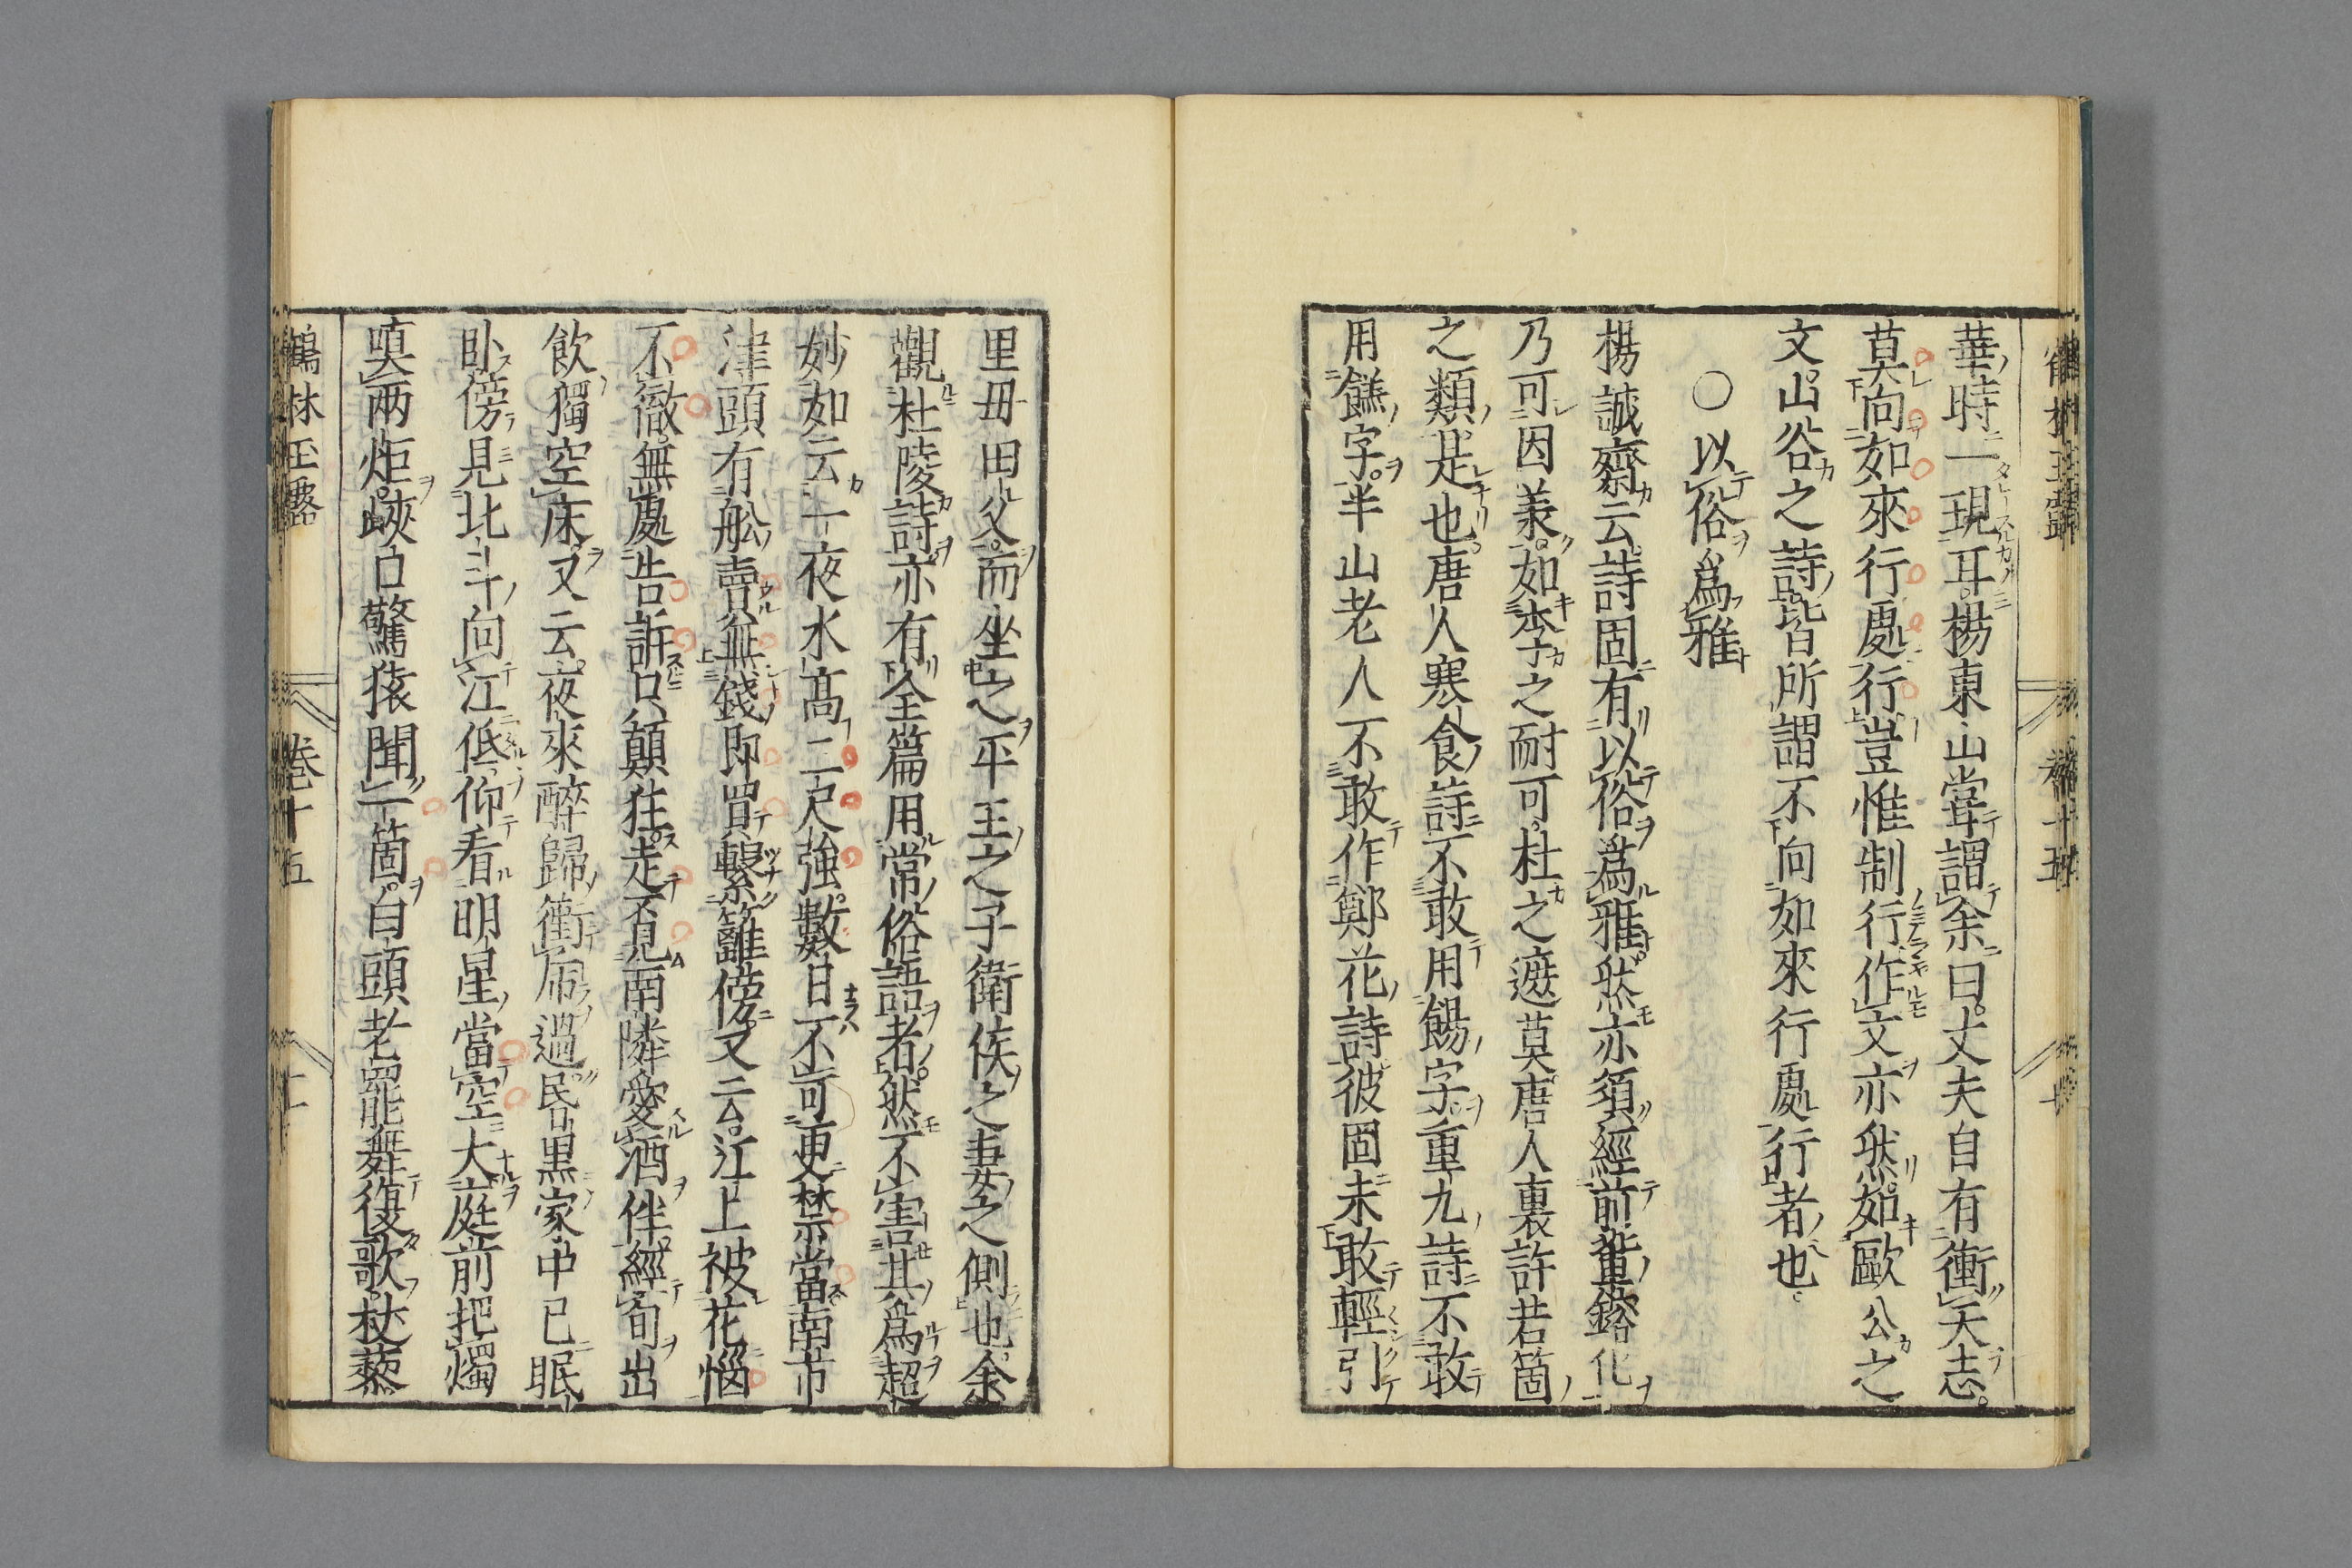 華時一現耳楊東山甞謂余曰丈夫自有衝天志
莫向如來行處行豈惟制行作文亦然如歐公之
文山谷之詩皆所謂不向如來行處行者也
○以俗爲雅
楊誠齋云詩固有以俗爲雅然亦須經前輩鎔化
乃可因羕如李之耐可杜之遮莫唐人裏許若箇
之類是也唐人寒食詩不敢用餳字重九詩不敢
用餻字半山老人不敢作鄭花詩彼固未敢輕引
里母田父而坐之平王之子衛侯之妻之側也余
觀杜陵詩亦有全篇用常俗語者然不害其爲超
妙如云一夜水高二尺強數日不可更禁當南市
津頭有舩賣無錢即買繫籬傍又云江上被花惱
不徹無處告訴只顛狂走覓南隣愛酒伴經旬出
飲獨空床又云夜來醉歸衝虎過昏黒家中已眠
臥傍見北斗向江低仰看明星當空大庭前把燭
嗔兩炬峽口驚猿聞一箇白頭老罷舞復歌杖藜
鶴林玉露 卷十五